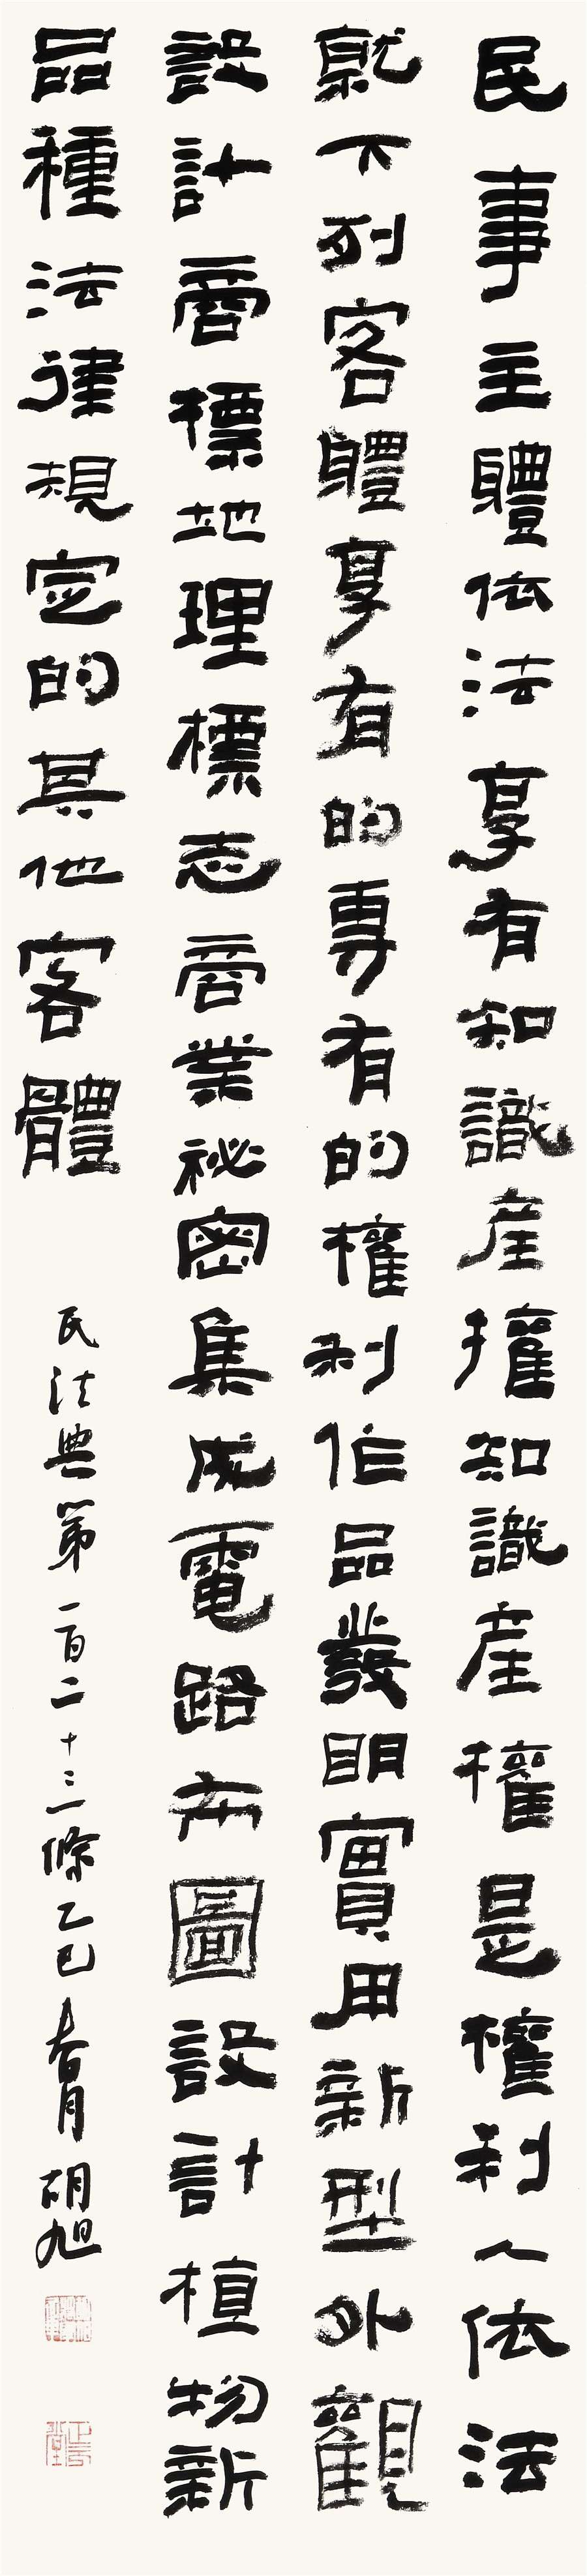 民事主體依法享有知識產權知識產權是權利人依法
就下列客體享有的專有的權利作品發明實用新型外觀
設計商標地理標志商業祕密集成電路布圖設計植物新
品種法律規定的其他客體
民法典第一百二十三條乙巳春月胡旭